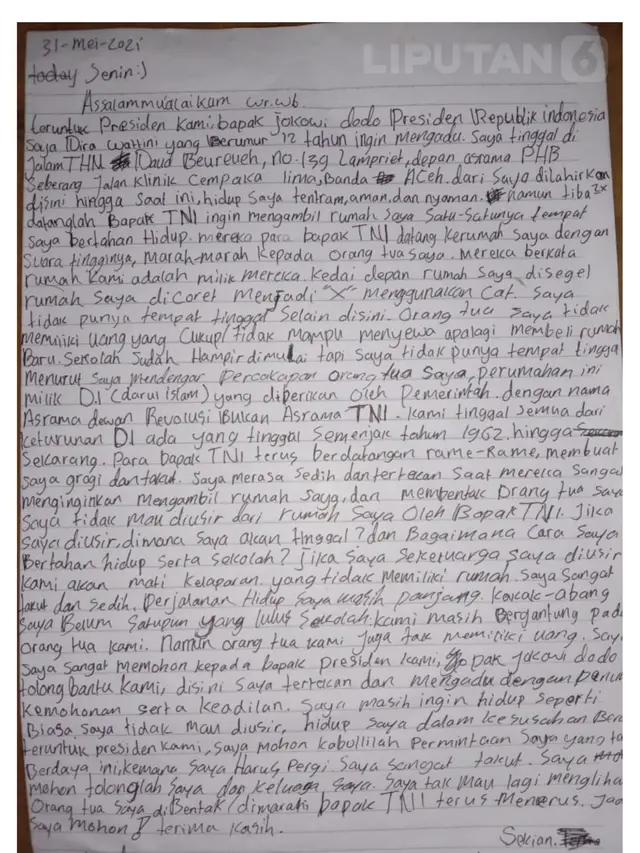 LIPUTAN 6
31-Mei-2021
today Senin:)
Assalammualaikum wr.wb.
teruntuk Presiden kami bapak jokowi dodo Presiden Republik indonesia
Saya Dira wattini yang Berumur 12 tahun ingin mengadu. Saya tinggal di
Jalam THM Daud Beureueh, no.139 Lampriet, depan asrama PHB
Seberang Jalan Klinik Cempaka lima, Banda Aceh. dari Saya dilahirkan
disini hingga Saat ini, hidup Saya tentram, aman, dan nyaman. namun tiba2x
datanglah Bapak TNI ingin mengambil rumah saya Satu-Satunya tempat
saya bertahan Hidup. mereka para bapak TNI datang kerumah saya dengan
suara tingginya, marah-marah kepada orang tua saya. mereka berkata
rumah kami adalah milik mereka. kedai depan rumah saya disegel
rumah saya dicoret menjadi "X" menggunakan Cat. Saya
tidak punya tempat tinggal Selain disini. Orang tua saya tidak
memiliki uang yang Cukup/tidak mampu menyewa apalagi membeli rumah
Baru. Sekolah Sudah Hampir dimulai tapi Saya tidak punya tempat tingga
Menurut saya mendengar Percakapan orang tua saya, perumahan ini
milik D.I (darul islam) yang diberikan oleh Pemerintah. dengan nama
Asrama dewan Revolusi Bukan Asrama TNI. kami tinggal semua dari
keturunan DI ada yang tinggal Semenjak tahun 1962. hingga
Sekarang. Para bapak TNI terus berdatangan rame-Rame, membuat
saya grogi dan takut. Saya merasa Sedih dan tertekan Saat mereka Sangat
menginginkan mengambil rumah saya, dan membentak Orang tua saya
Saya tidak mau diusir dari rumah Saya Oleh Bapak TNI. Jika
saya diusir, dimana saya akan tinggal? dan Bagaimana Cara Saya
Bertahan hidup serta sekolah? Jika Saya sekeluarga saya diusir
kami akan mati kelaparan. yang tidak memiliki rumah. Saya Sangat
takut dan Sedih. Perjalanan Hidup Saya masih panjang. Kakak-abang
saya Belum Satupun yang lulus Sekolah. kami masih Bergantung pada
orang tua kami. Namun orang tua kami Juga tak memiliki uang. Say
saya Sangat memohon kepada bapak presiden kami, pak jokowi dodo
tolong bantu kami, disini saya tertekan dan mengadu dengan penuh
kemohonan serta keadilan. Saya masih ingin hidup seperti
Biasa, saya tidak mau diusir, hidup saya dalam kesusahan Ber
teruntuk presiden kami, Saya mohon kabullilah Permintaan Saya yang ta
Berdaya ini, kemana Saya Harus Pergi Saya Sangat takut. Saya
mohon tolonglah Saya dan keluaga saya. Saya tak mau lagi menglihat
Orang tua saya di Bentak/dimarahi bapak TNI terus menerus. Jad
Saya mohon terima kasih.
Sekian.